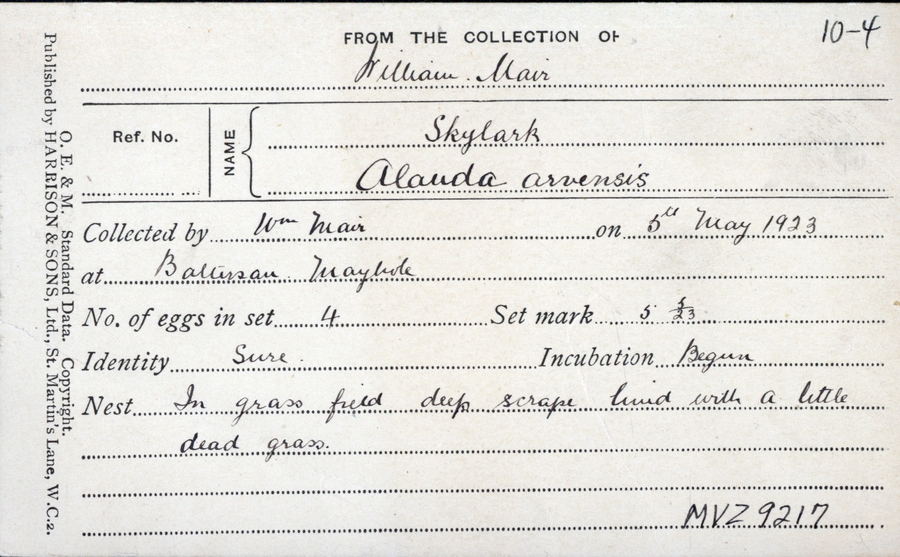 10-4
FROM THE COLLECTION OF
William Mair
Ref. No.
NAME
Skylark
Alauda arvensis
Collected by Wm Mair on 5th May 1923
at Baltersan Maybole
No. of eggs in set 4 Set mark 5 5/23
Identity Sure. Incubation Begun
Nest In grass field deep scrape lined with a little
dead grass.
MVZ 9217
O. E. & M. Standard Data. Copyright.
Published by HARRISON & SONS, Ltd., St. Martin's Lane, W.C.2.